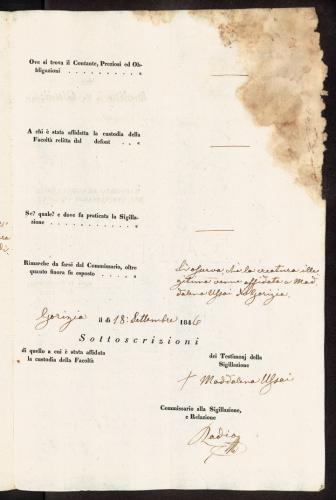 Ove si trova il Contante, Preziosi ed Ob-
bligazioni . . . . . . . . . . . «
A chi è stata affidatta la custodia della
Facoltà relitta dal defont . . . «
Se? quale? e dove fu praticata la Sigilla-
zione . . . . . . . . . . . . . «
Rimarche da farsi dal Commissario, oltre
quanto finora fu esposto . . . . «
Si osserva che la creatura ille
gittima venne affidata a Mad
dalena Ussai di Gorizia.
Gorizia il dì 18: Settembre 1846
Sottoscrizioni
di quello a cui è stata affidata
la custodia della Facoltà
dei Testimonj della
Sigillazione
+ Maddalena Ussai
Commissario alla Sigillazione,
e Relazione